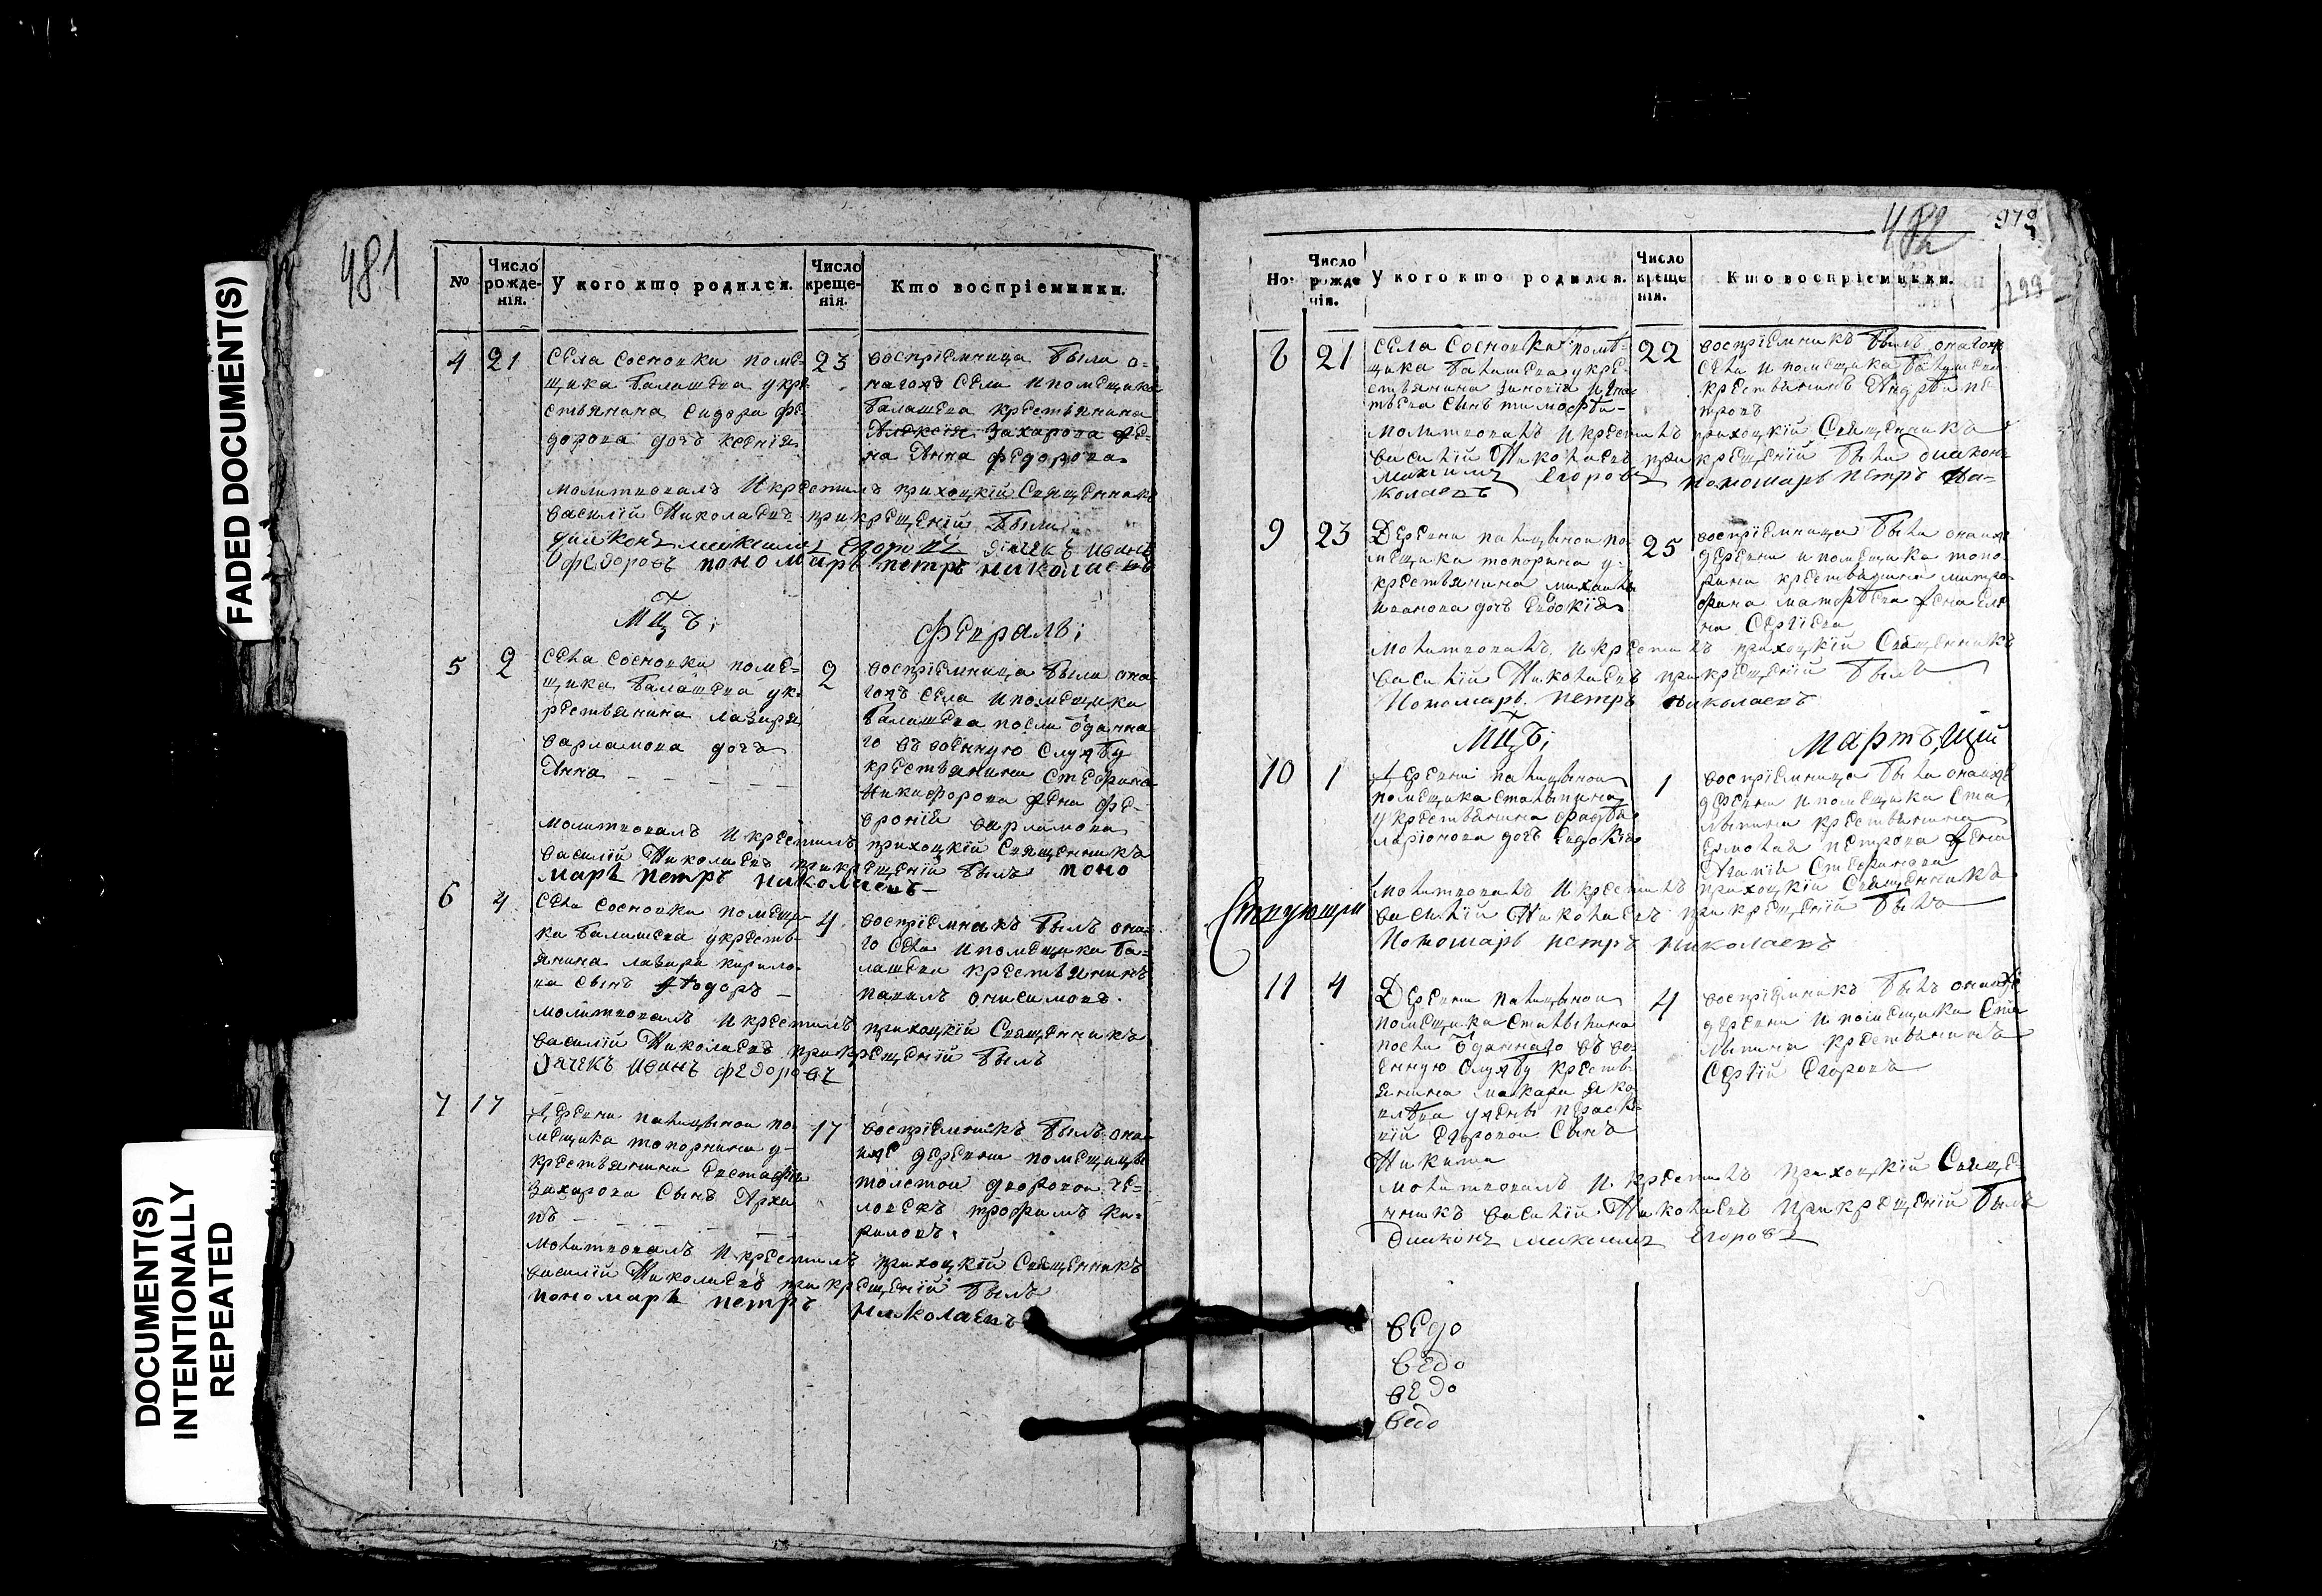 FADED DOCUMENT(S)
DOCUMENT(S)
INTENTIONALLY
REPEATED
481
№
Число рожде-нія.
У кого кто родился.
Число креще-нія.
Кто воспріемники.
4 21
села сосновки поме-
щика балашева укре
стьянина сидора фе
дорова дочь
23
воспріемница была о-
нагожъ села ипомещика
балашева крестьянина
Алексея Захарова же-
на Анна федорова
молитвовалъ Икрестилъ приходкій Священникъ
василій Николаевъ прикрещеніи были
диаконъ максимъ егоровъ дячекъ Иванъ
федоровъ пономарь петръ николаевъ
Мцъ;
февраль;
5 2
села сосновки поме-
щика балашева ук-
рестьянина лазаря
варламова дочь
Анна
2
воспріемница была она-
гожъ села ипомещика
балашева посли ѿданна
го въ военную службу
крестьянина Стефана
Никифорова жена фе-
вронія варламова
молитвовалъ Икрестилъ приходкій Священникъ
василій Николаевъ прикрещеніи былъ поно
марь петръ николаевъ
6 4
села сосновки помещи-
ка балашева укресть-
янина лазаря кирило-
ва сынъ Феодоръ
4
воспріемникъ былъ она-
го села ипомещика ба-
лашева крестьянинъ
павилъ онисимовъ.
молитвовалъ Икрестилъ приходкій Священникъ
василій Николаевъ прикрещеніи былъ
дячекъ Иванъ федоровъ
7 17
Деревни палицыной по-
мещика топорнина у-
крестьянина Евстафия
Захарова Сынъ Архи
пъ
17
воспріемникъ былъ она-
иже деревни помещицы
толстой дворовой че-
ловекъ трофимъ ки-
риловъ.
молитвовалъ Икрестилъ приходкій Священникъ
василій Николаевъ прикрещеніи былъ
пономарь петръ николаевъ
482
979
299
Но:
Число рожде нія.
У кого кто родился.
Число креще нія.
Кто воспріемники.
8 21
села Сосновки помѣ-
щика балашева укре-
стьянина Зиновія Игна-
тьева сынъ тимофѣи
22
воспріемникъ былъ онагожъ
села и помещика балашева
крестьянинъ Андрѣи пе
тровъ
молитвовалъ Икрестилъ приходкій Священникъ
василій Николаевъ при крещеніи были диаконъ
максимъ Егоровъ пономарь петръ Ни-
колаевъ
9 23
Деревни палицыной по
мещика топорнина у-
крестьянина михаила
иванова дочь Евдокія
25
воспріемница была онаиже
деревни и помещика топо-
рнина крестьянина митро-
фана матвѣева жена еле
на Сергіева
молитвовалъ, икрестилъ приходкій Священникъ
василій Николаевъ прикрещеніи былъ
Пономарь петръ николаевъ
Мцъ;
мартъ,
10 1
Деревни палицыной
помещика Столыпина
укрестьянина
ларионова дочь Евдокія
1
воспріемница была онаиже
деревни ипомещика Сто
лыпина крестьянина
Ермолая петрова жена
Агапія Стефанова
молитвовалъ Икрестилъ приходкій Священникъ
василій Николаевъ прикрещеніи былъ
Пономарь петръ николаевъ
11 4
Деревни палицыной
помещика Столыпина
посли ѿданнаго въ во-
енную службу кресть-
янина макара яко
влѣва ужены параске
віи Егоровой Сынъ
Никита
4
воспріемникъ былъ онаиже
деревни ипомещика Сто
лыпина крестьянинъ
Сергій Егоровъ
молитвовалъ Икрестилъ приходкій Священ-
никъ василій Николаевъ прикрещеніи былъ
Диаконъ максимъ Егоровъ
ведо
ведо
ведо
ведо